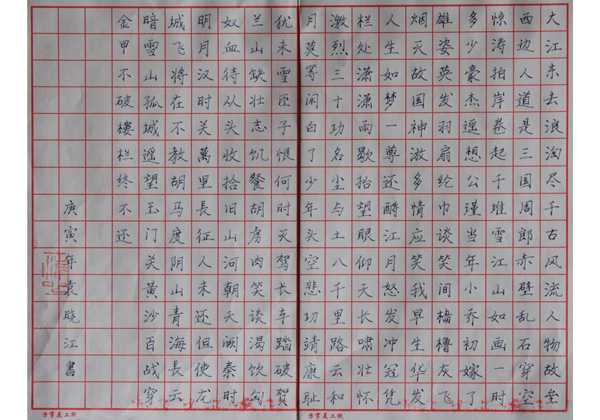 大江东去浪淘尽千古风流人物故垒
西边人道是三国周郎赤壁乱石穿空
惊涛拍岸卷起千堆雪江山如画一时
多少豪杰遥想公瑾当年小乔初嫁了
雄姿英发羽扇纶巾谈笑间檣橹灰飞
烟灭故国神游多情应笑我早生华发
人生如梦一尊还酹江月怒发冲冠凭
栏处潇潇雨歇抬望眼仰天长啸壮怀
激烈三十功名尘与土八千里路云和
月莫等闲白了少年头空悲切靖康耻
犹未雪臣子恨何时灭驾长车踏破贺
兰山缺壮志饥餐胡虏肉笑谈渴饮匈
奴血待从头收拾旧山河朝天阙秦时
明月汉时关萬里長征人未还但使龙
城飞将在不教胡马度阴山青海長云
暗雪山孤城遥望玉门关黄沙百战穿
金甲不破樓栏终不还
庚寅年袁晓江書